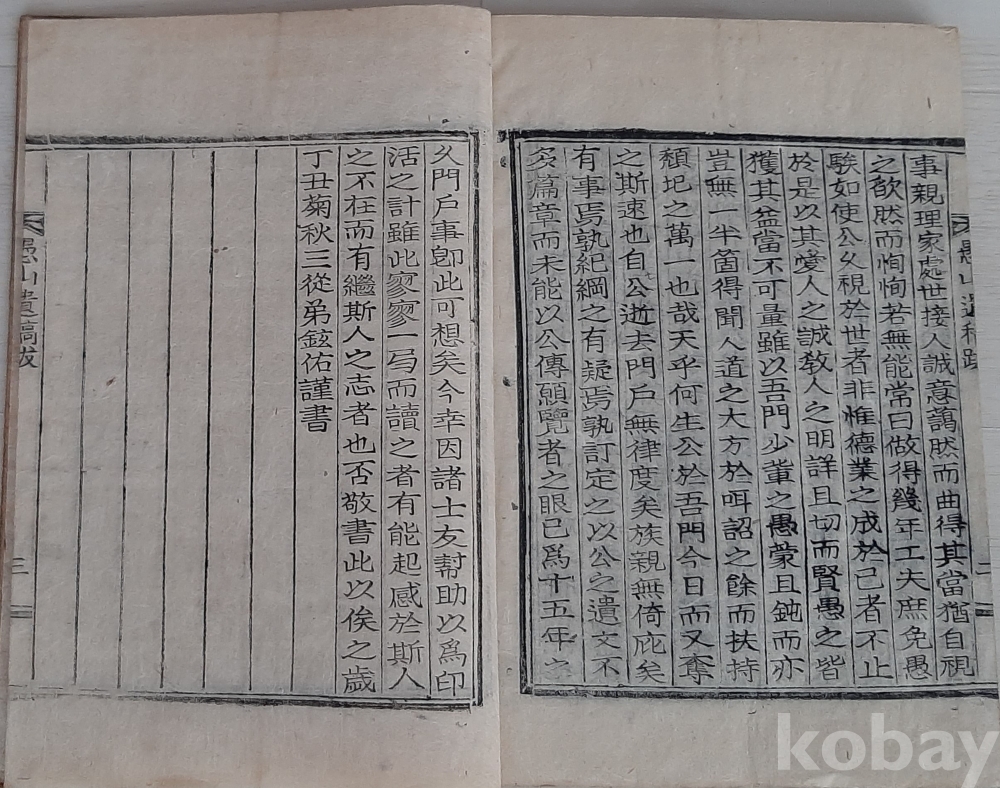 事親理家處世接人誠意藹然而曲得其當猶自視
之歆然而恂恂若無能常曰做得幾年工夫庶免愚
騃如使公久視於世者非惟德業之成於己者不止
於是以其愛人之誠敎人之明詳且切而賢愚之皆
獲其益當不可量雖以吾門少輩之愚蒙且鈍而亦
豈無一半箇得聞人道之大方於咡詔之餘而扶持
頹圮之萬一也哉天乎何生公於吾門今日而又奪
之斯速也自公逝去門戶無律度矣族親無倚庇矣
有事焉孰紀綱之有疑焉孰訂定之以公之遺文不
多篇章而未能以公傳願覽者之眼已爲十五年之
愚山遺稿跋
二
久門戶事卽此可想矣今幸因諸士友幇助以爲印
活之計雖此寥寥一弓而讀之者有能起感於斯人
之不在而有繼斯人之志者也否敬書此以俟之歲
丁丑菊秋三從弟鉉佑謹書
愚山遺稿跋
三
kobay